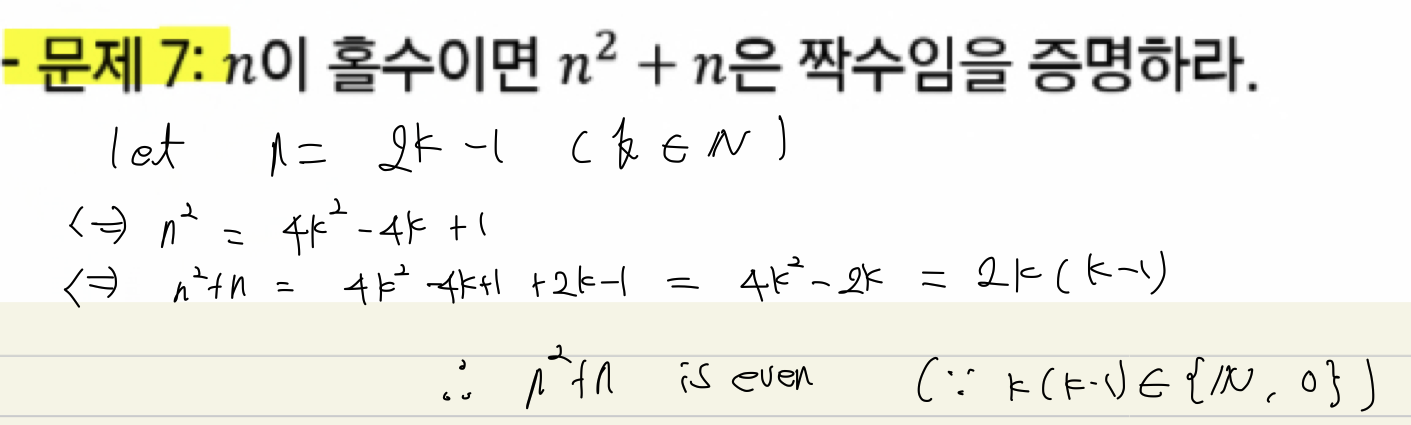 - 문제 7: n이 홀수이면 n² + n은 짝수임을 증명하라.
let n = 2k -1 ( k ∈ ℕ )
⟺ n² = 4k² -4k +1
⟺ n²+n = 4k² -4k+1 +2k-1 = 4k² - 2k = 2k ( k-1)
∴ n²+n is even (∵ k(k-1) ∈ {ℕ, 0})